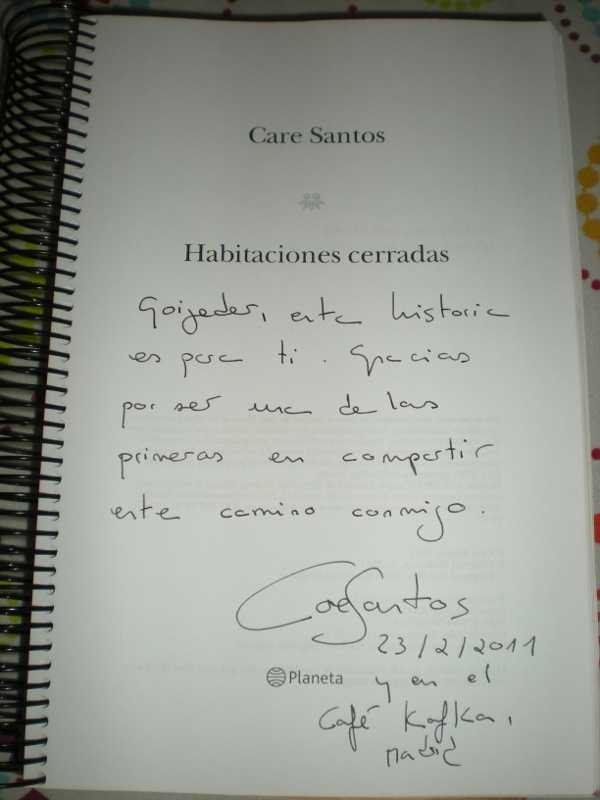 Care Santos
Habitaciones cerradas
Goizeder, esta historia
es para ti. Gracias
por ser una de las
primeras en compartir
este camino conmigo.
Care Santos
23/2/2011
Planeta
y en el
Café Kafka,
Madrid